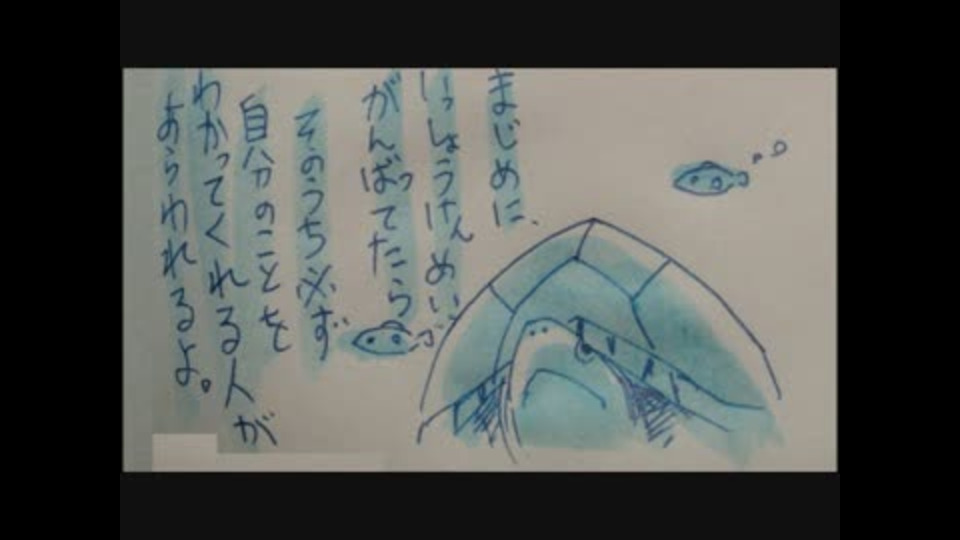 まじめに、
いっしょうけんめい
がんばってたら
そのうち必ず
自分のことを
わかってくれる人が
あらわれるよ。